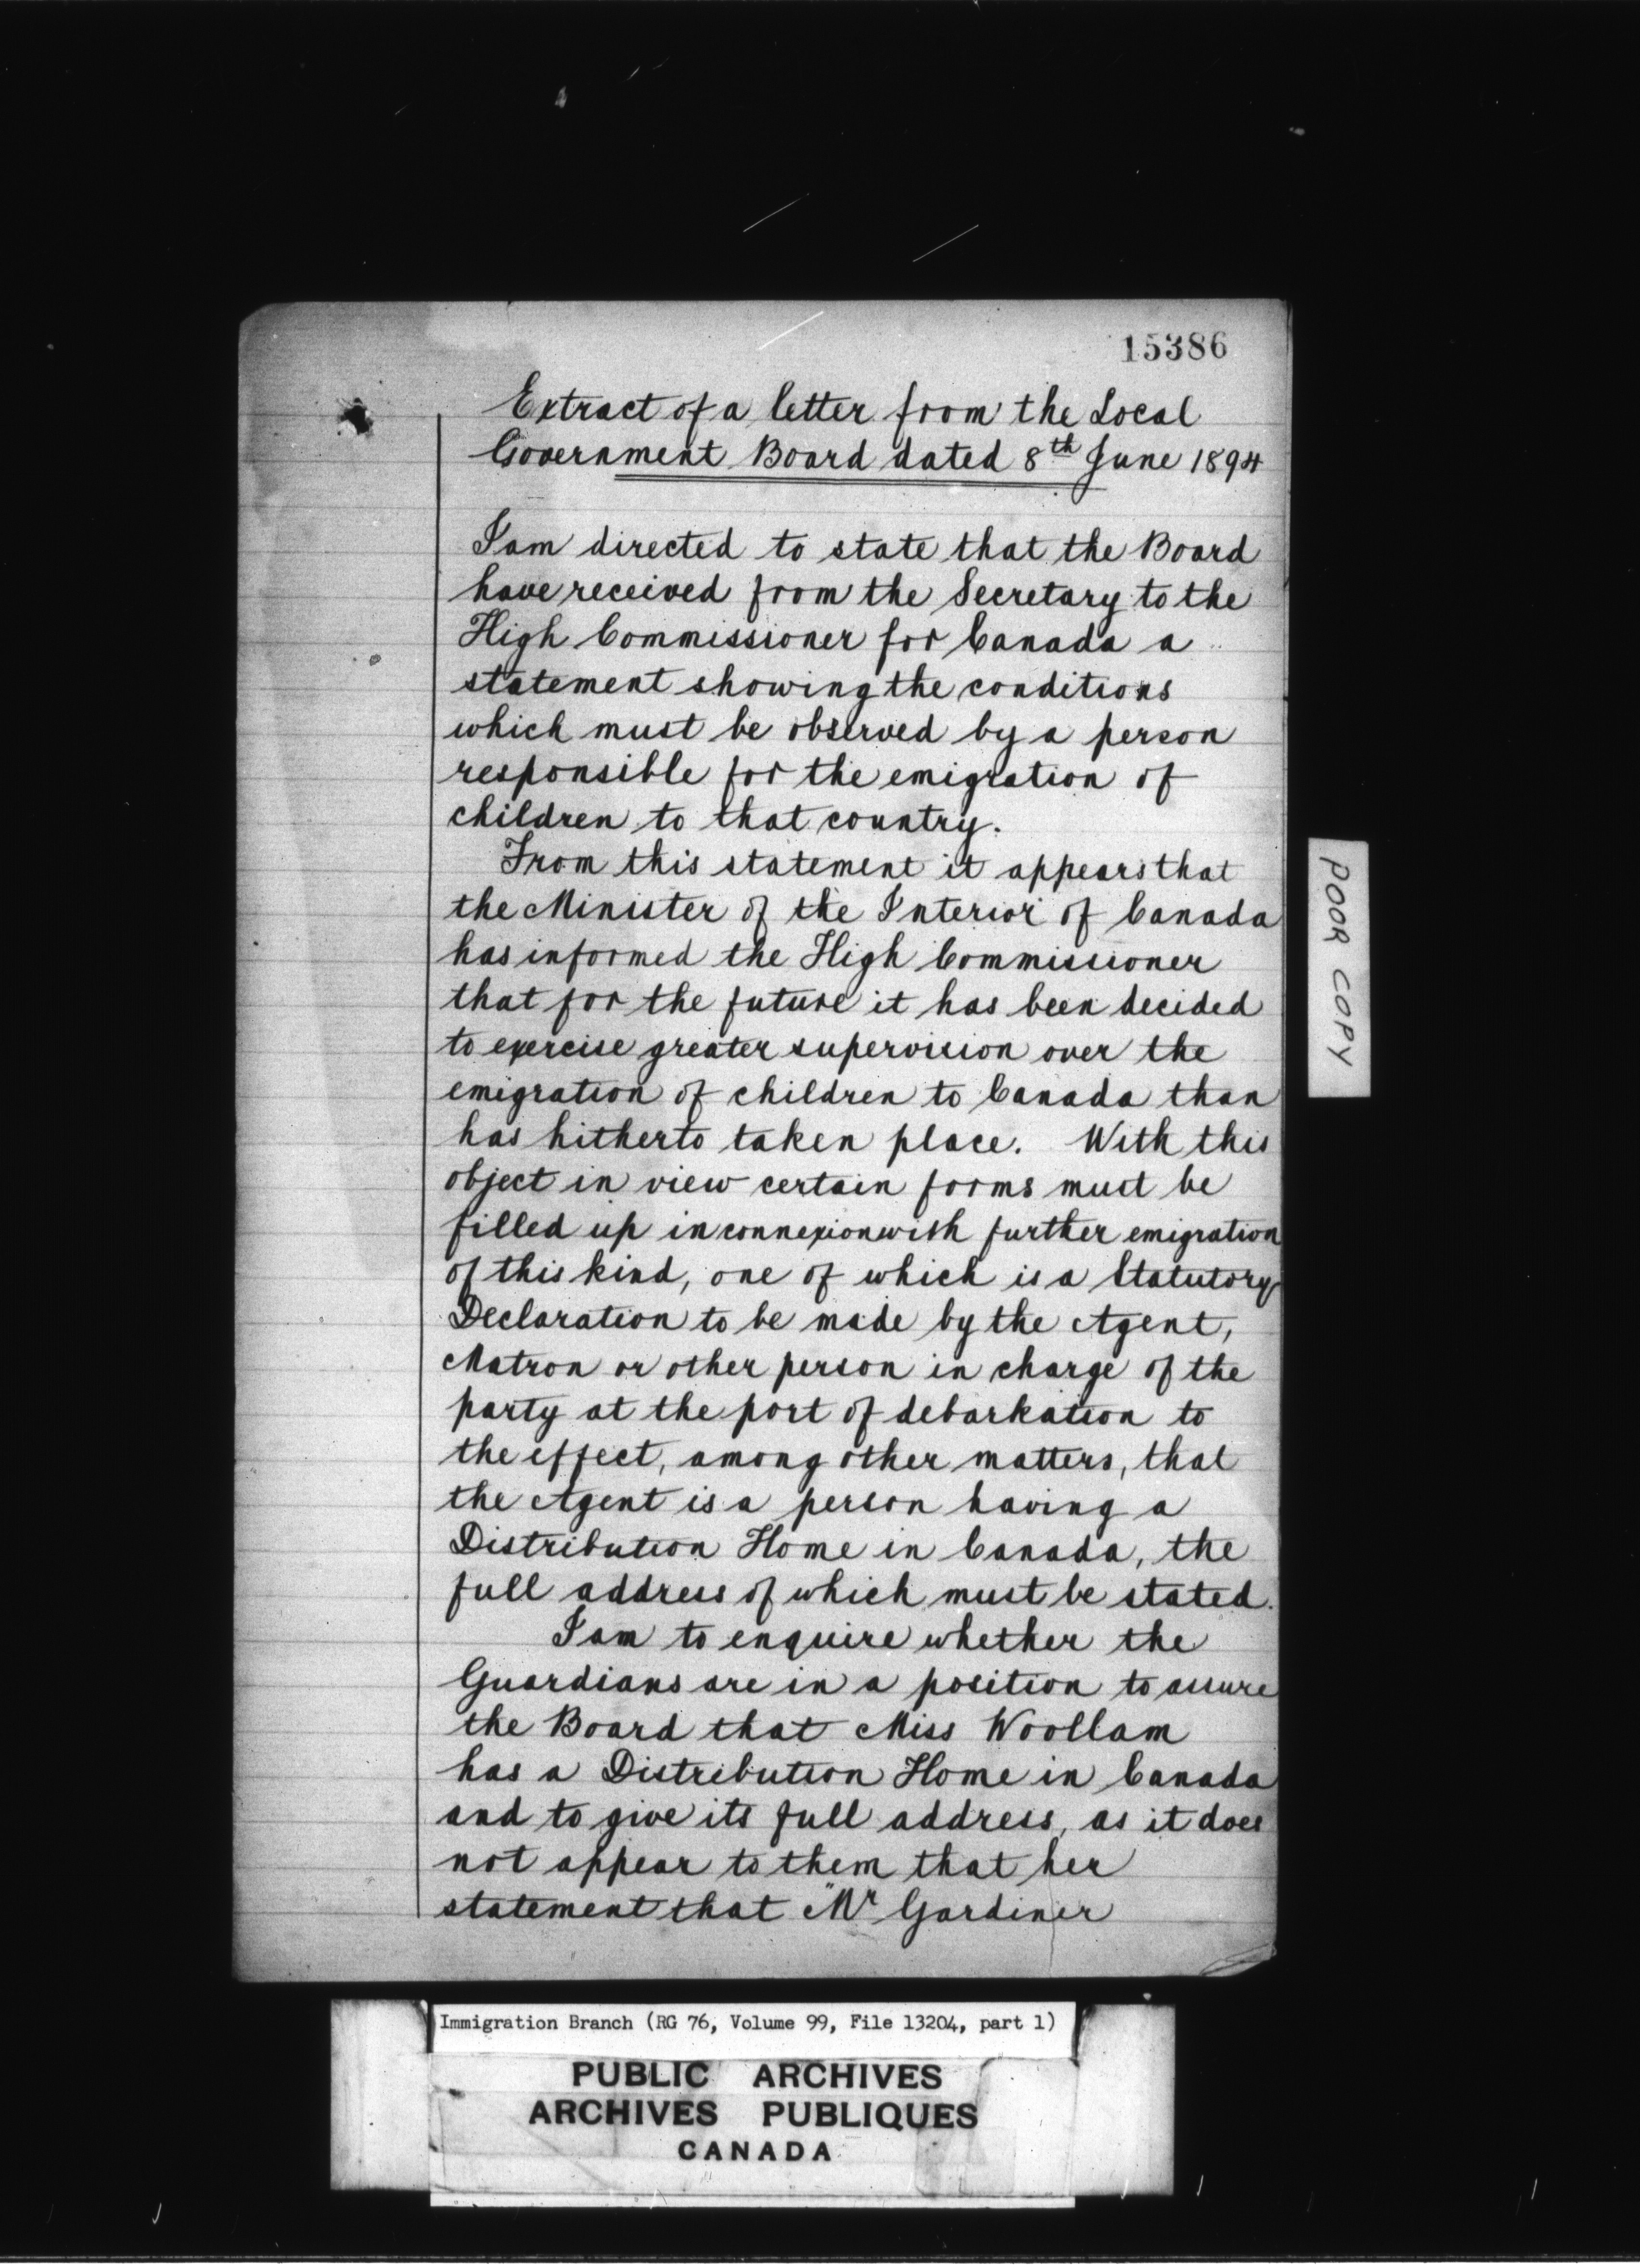 15386
Extract of a letter from the Local
Government Board dated 8th June 1894
I am directed to state that the Board
have received from the Secretary to the
High Commissioner for Canada a
statement showing the conditions
which must be observed by a person
responsible for the emigration of
children to that country.
From this statement it appears that
the Minister of the Interior of Canada
has informed the High Commissioner
that for the future it has been decided
to exercise greater supervision over the
emigration of children to Canada than
has hitherto taken place. With this
object in view certain forms must be
filled up in connexion with further emigration
of this kind, one of which is a Statutory
Declaration to be made by the Agent,
Matron or other person in charge of the
party at the port of debarkation to
the effect, among other matters, that
the Agent is a person having a
Distribution Home in Canada, the
full address of which must be stated.
I am to enquire whether the
Guardians are in a position to assure
the Board that Miss Woollam
has a Distribution Home in Canada
and to give its full address, as it does
not appear to them that her
statement that "Mr Gardiner
POOR COPY
Immigration Branch (RG 76, Volume 99, File 13204, part 1)
PUBLIC ARCHIVES
ARCHIVES PUBLIQUES
CANADA